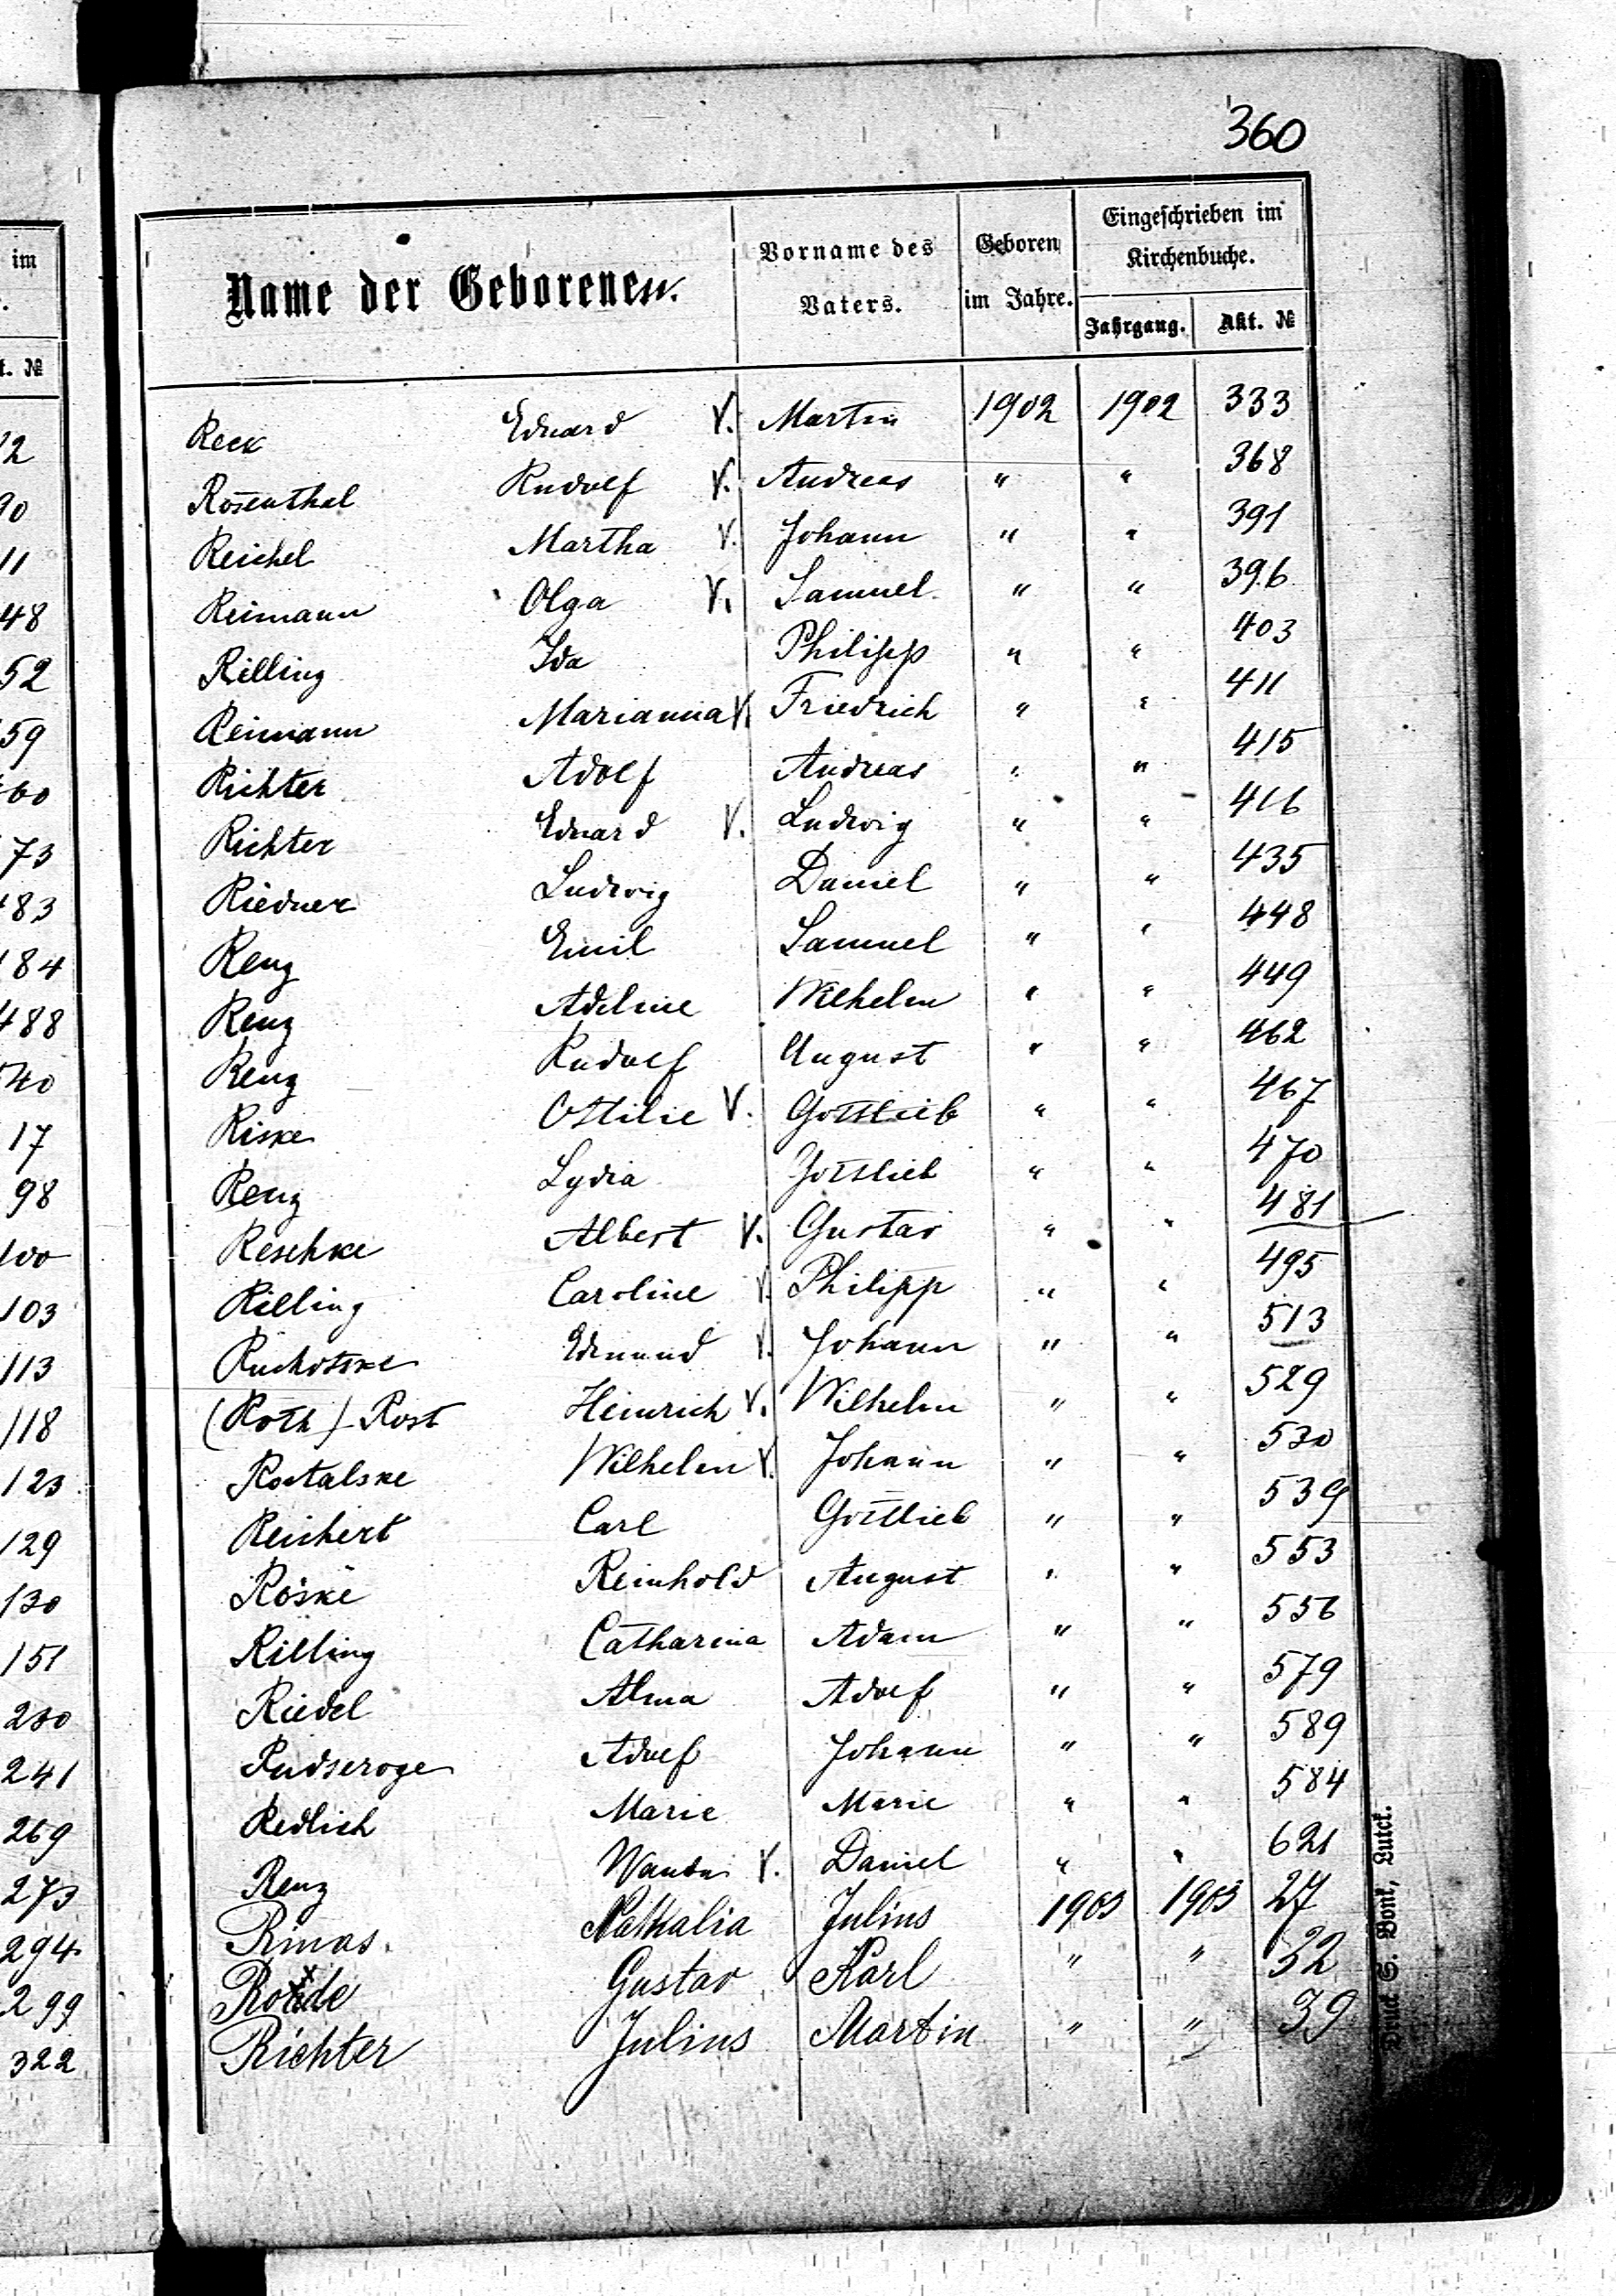 im
.
t. №
12
90
11
48
52
59
460
73
483
484
488
540
17
98
100
103
113
118
123
129
130
151
230
241
269
273
294
299
322
360
Name der Geborenen.
Vorname des Vaters.
Geboren im Jahre.
Eingeschrieben im Kirchenbuche.
Jahrgang. Akt. №
Reck Eduard V. Martin 1902 1902 333
Rosenthal Rudolf V. Andreas " " 368
Reichel Martha V. Johann " " 391
Reimann Olga V. Samuel " " 396
Rilling Ida Philipp " " 403
Reimann Marianna V. Friedrich " " 411
Richter Adolf Andreas " " 415
Richter Eduard V. Ludwig " " 416
Riedner Ludwig Daniel " " 435
Renz Emil Samuel " " 448
Renz Adeline Wilhelm " " 449
Renz Rudolf August " " 462
Riske Ottilie V. Gottlieb " " 467
Renz Lydia Gottlieb " " 470
Reschke Albert V. Gustav " " 481
Rilling Caroline V. Philipp " " 495
Edmund V. Johann " " 513
(Roth) Rost Heinrich V. Wilhelm " " 529
Rostalske Wilhelm V. Johann " " 530
Reichert Carl Gottlieb " " 539
Röske Reinhold August " " 553
Rilling Catharina Adam " " 556
Riedel Alma Adolf " " 579
Rudseroge Adolf Johann " " 589
Redlich Marie Marie " " 584
Renz Wanda V. Daniel " " 621
Rinas. Nathalia Julius 1903 1903 27
Rohde Gustav Karl " " 32
Richter Julius Martin " " 39
Druck S. Bonk, Lutck.